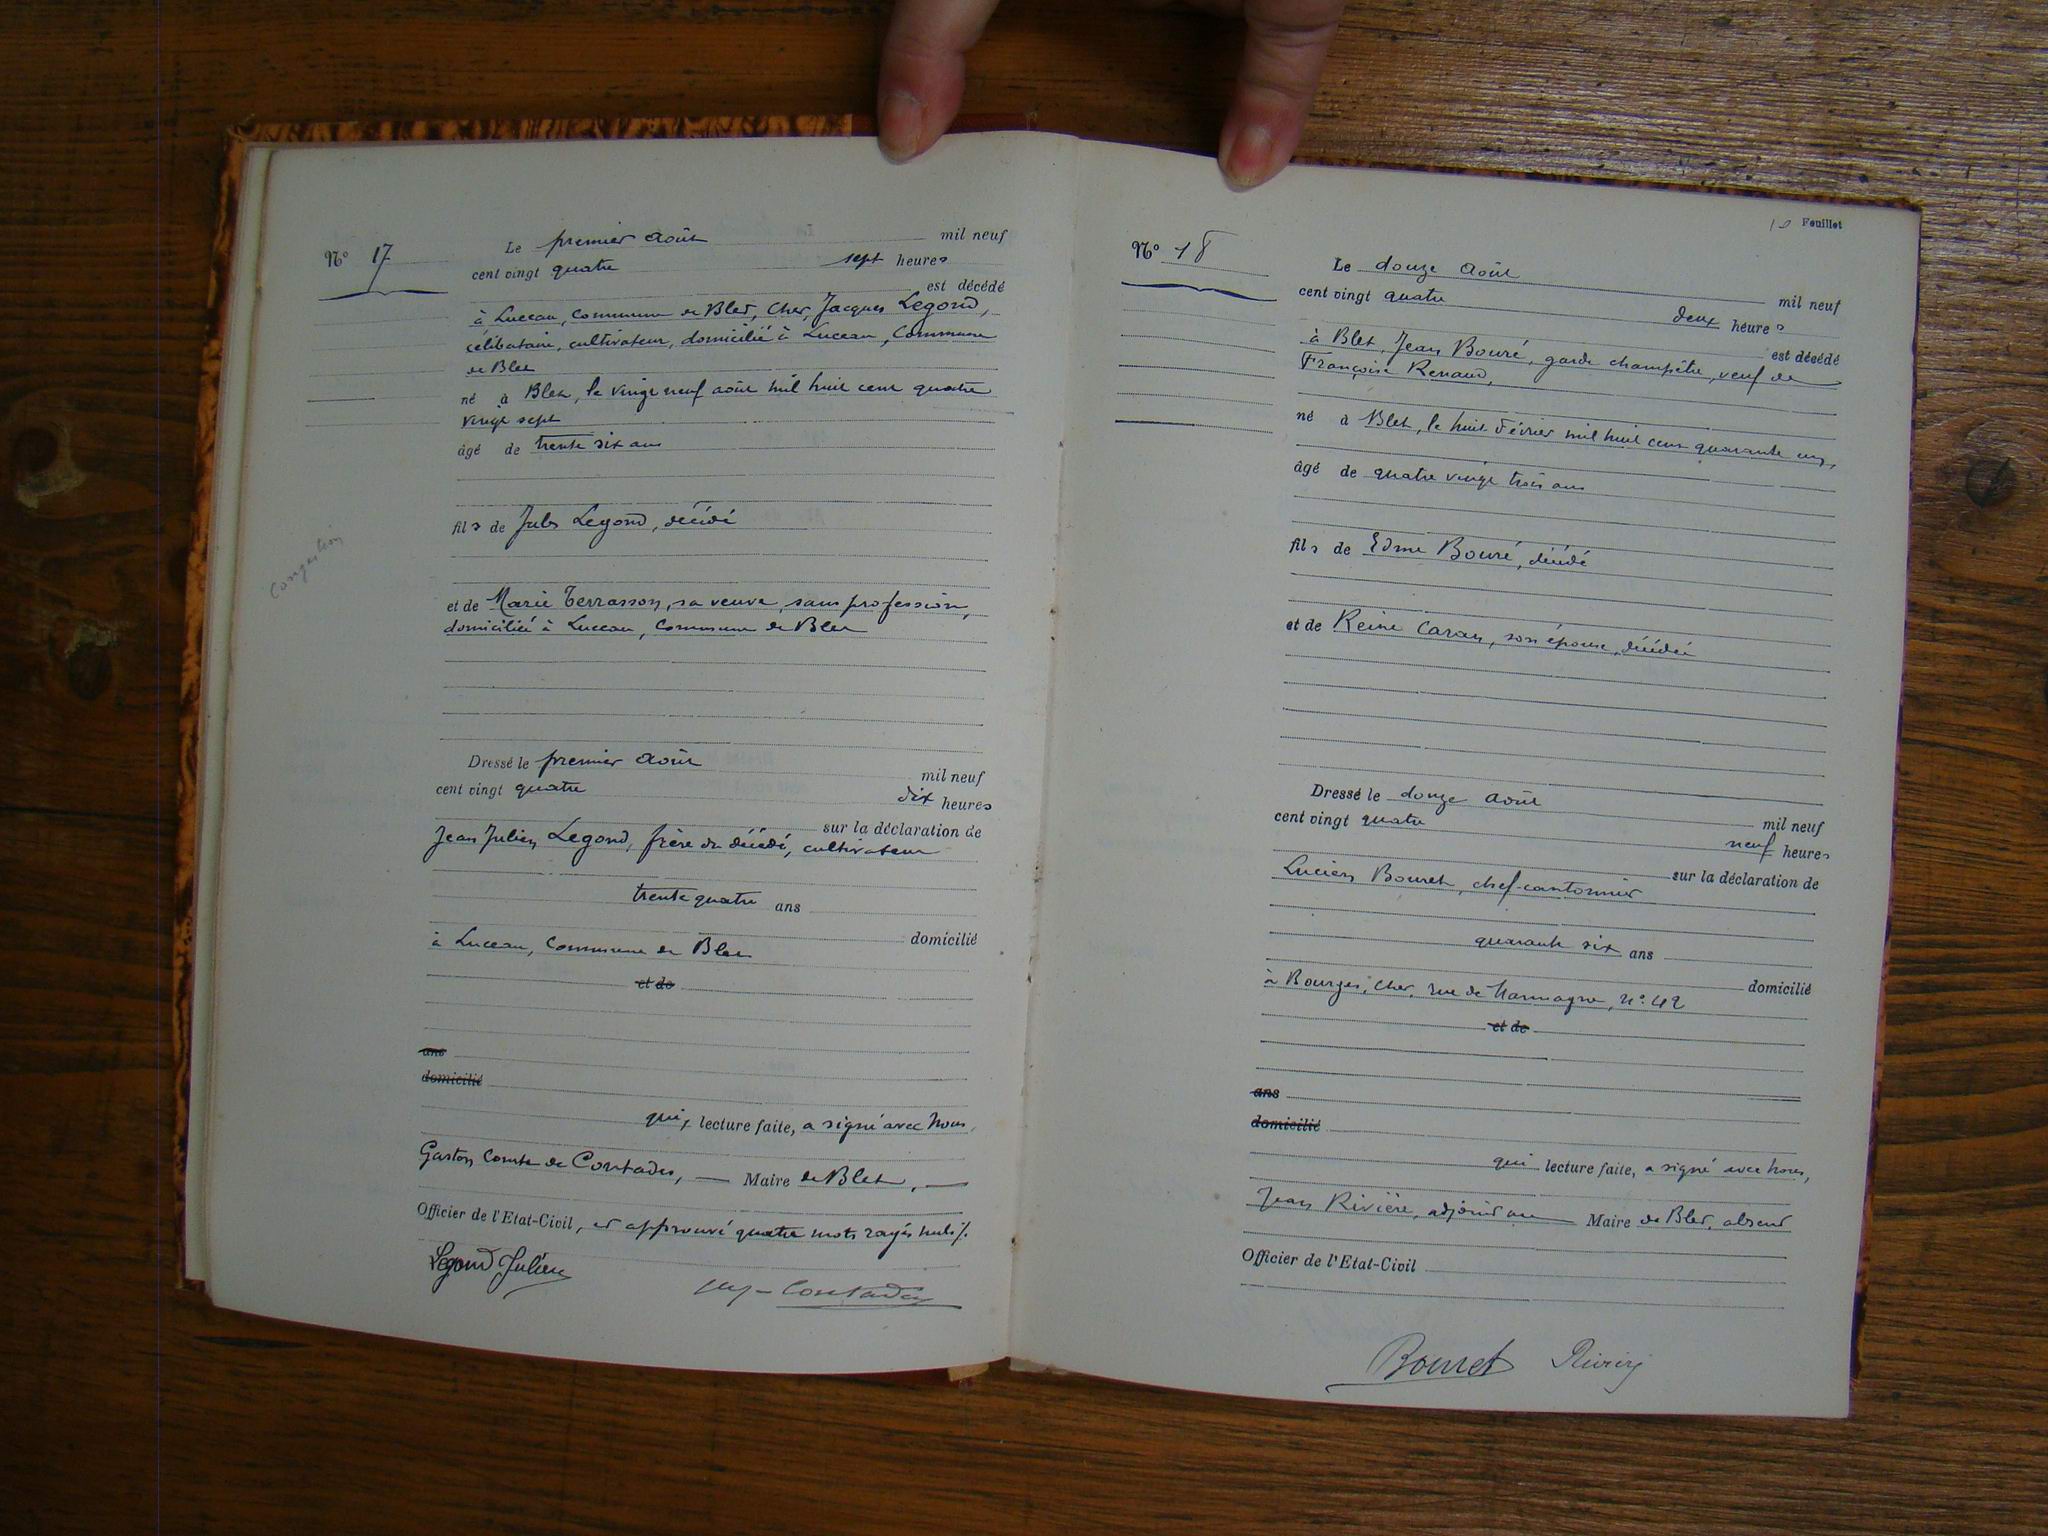 N° 17
Le premier Août mil neuf
cent vingt quatre sept heures
est décédé
à Luceau, Commune de Blet, Cher, Jacques Legond,
célibataire, cultivateur, domicilié à Luceau, Commune
de Blet
né à Blet, le vingt neuf août mil huit cent quatre
vingt sept
âgé de trente six ans
fils de Jules Legond, décédé
Congestion
et de Marie Terrasson, sa veuve, sans profession,
domiciliée à Luceau, Commune de Blet
Dressé le premier Août mil neuf
cent vingt quatre dix heures
sur la déclaration de
Jean Julien Legond, frère du décédé, cultivateur
trente quatre ans
domicilié
à Luceau, Commune de Blet
et de
ans
domicilié
qui, lecture faite, a signé avec Nous,
Gaston Comte de Contades, — Maire de Blet, —
Officier de l'Etat-Civil, et approuvé quatre mots rayés nuls %.
Legond Julien
Contades
Feuillet
N° 18
Le douze Août mil neuf
cent vingt quatre deux heures
est décédé
à Blet, Jean Bouré, garde champêtre, veuf de
Françoise Renaud,
né à Blet, le huit Février mil huit cent quarante un,
âgé de quatre vingt trois ans
fils de Edme Bouré, décédé
et de Reine Caran, son épouse, décédée
Dressé le douze Août mil neuf
cent vingt quatre neuf heures
sur la déclaration de
Lucien Bouret, chef-cantonnier
quarante six ans
domicilié
à Bourges, Cher, rue de Marmagne, n° 42
et de
ans
domicilié
qui lecture faite, a signé avec nous,
Jean Rivière, adjoint au Maire de Blet, absent
Officier de l'Etat-Civil
Bouret Rivière